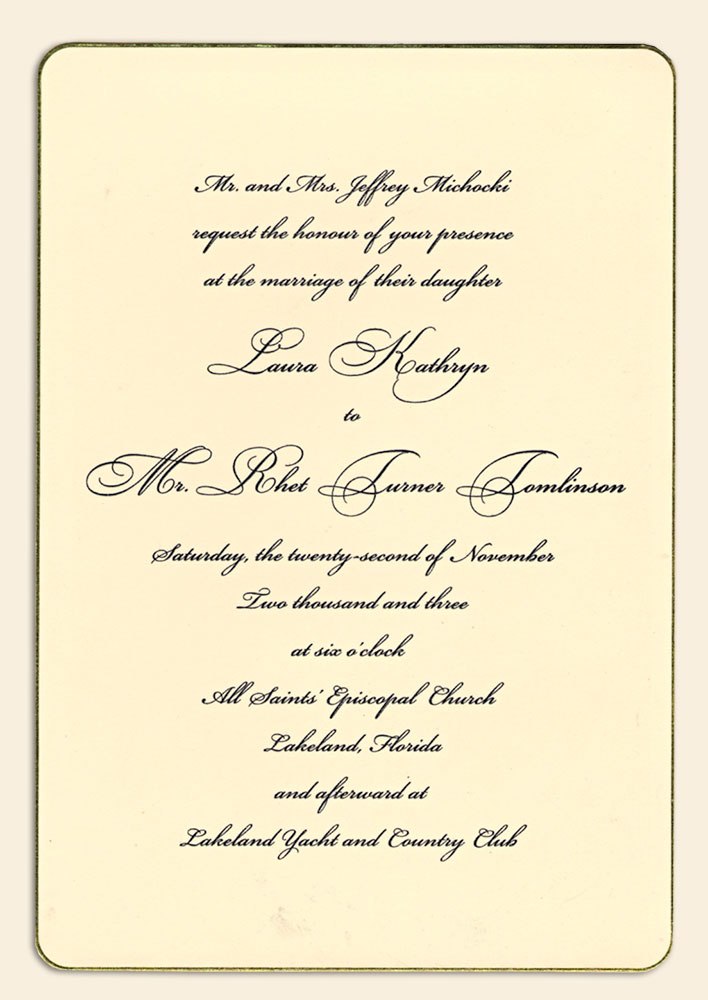 Mr. and Mrs. Jeffrey Michocki
request the honour of your presence
at the marriage of their daughter
Laura Kathryn
to
Mr. Rhet Turner Tomlinson
Saturday, the twenty-second of November
Two thousand and three
at six o'clock
All Saints' Episcopal Church
Lakeland, Florida
and afterward at
Lakeland Yacht and Country Club